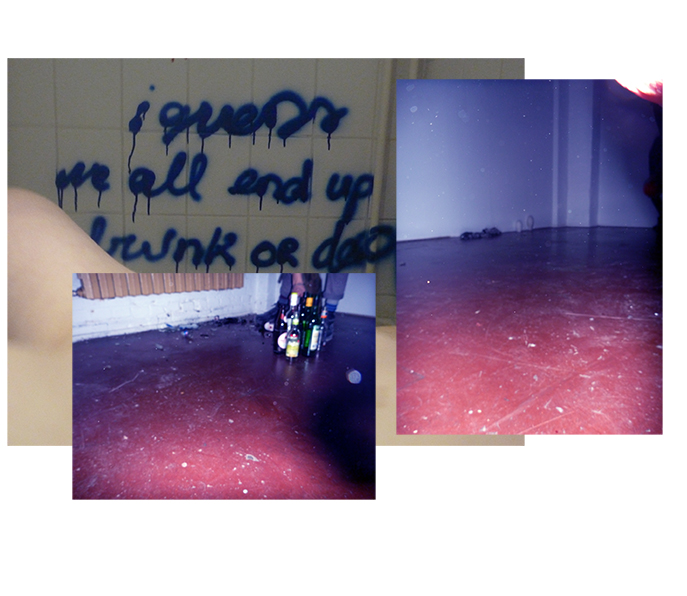 i guess
we all end up
drunk or dead